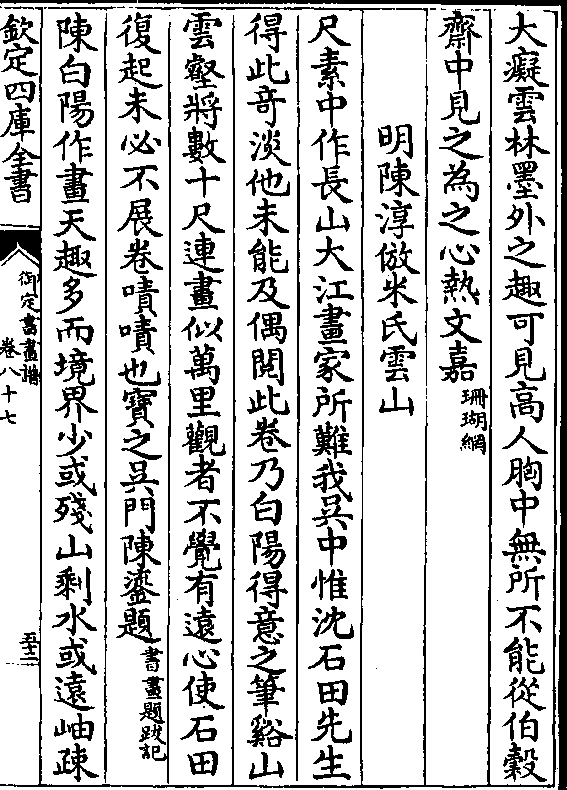 大癡雲林墨外之趣可見高人胸中無所不能從伯穀
齋中見之為之心熱文嘉珊瑚網
明陳淳倣米氏雲山
尺素中作長山大江畫家所難我吳中惟沈石田先生
得此奇淡他未能及偶閱此卷乃白陽得意之筆谿山
雲壑將數十尺連畫似萬里觀者不覺有遠心使石田
復起未必不展卷嘖嘖也寶之吳門陳鎏題書畫題跋記
陳白陽作畫天趣多而境界少或殘山剩水或遠岫疎
欽定四庫全書
御定書畫譜
卷八十七
五十二